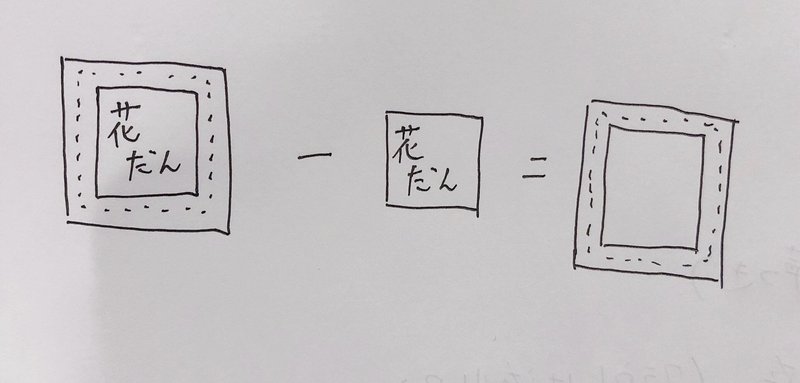 花
だん
－
花
だん
＝